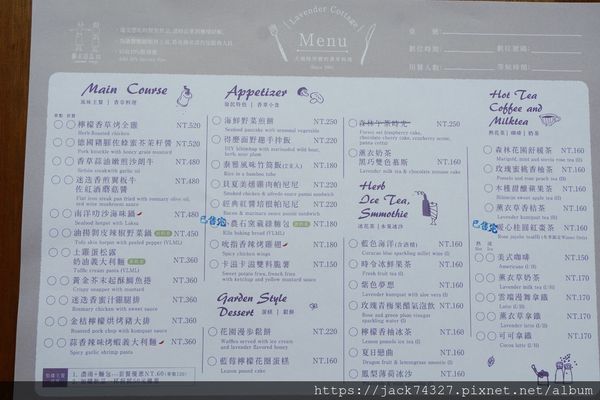 Lavender Cottage
Menu
Since 2001
Main Course
風味主餐 | 香草料理
檸檬香草烤全雞 NT.520
Herb Roasted chicken
德國豬腳佐蜂蜜芥茉籽醬 NT.520
Pork knuckle with honey grain mustard
香草蒜油嫩煎沙朗牛 NT.480
Sirloin steak with garlic oil
迷迭香煎翼板牛
佐紅酒蘑菇醬 NT.480
Flat iron steak pan fried with rosemary olive oil,
and wine mushroom sauce
南洋叻沙海味鍋 NT.480
Seafood hotpot with Laksa
NT.450
Tofu skin hotpot with perilla pepper (VLML)
土雞蛋松露
奶油義大利麵 NT.360
Truffle cream pasta (VLML)
黃金芥末起酥鯛魚捲 NT.360
Crispy snapper with mustard
迷迭香蜜汁雞腿排 NT.360
Rosemary chicken with sweet sauce
金桔檸檬烘烤豬大排 NT.360
Roasted pork chop with kumquat sauce
蒜香辣味烤蝦義大利麵 NT.360
Spicy garlic shrimp pasta
Appetizer
海鮮野菜煎餅 NT.250
Seafood pancake with seasonal vegetable
得麼面野趣手拌飯 NT.220
泰雅風味竹筒飯(立人) NT.180
Rice in a bamboo tube
貝夏美燻雞肉帕尼尼 NT.220
Smoked chicken & alfredo sauce panini sandwich
經典紅醬培根帕尼尼 NT.220
Bacon & marinara sauce panini sandwich
已售完
農石窯蔬麵包 NT.200
Kiln baking bread (VLML)
吮指香辣烤翅 NT.180
Spicy chicken wings
卡滋卡滋雙料脆薯 NT.150
Sweet potato fries, french fries
with ketchup and yellow mustard sauce
Garden Style
Dessert
蛋糕 | 鬆餅
花園漫步鬆餅 NT.220
Waffles served with ice cream
and lavender flavored honey
藍莓檸檬花園蛋糕 NT.160
Lemon pound cake
森林午茶時光 NT.250
Forest set (raspberry cake,
chocolate cherry cake, cranberry scone,
panna cotta)
薰衣奶茶
黑巧雙色慕斯 NT.160
Lavender milk tea & chocolate mousse cake
Herb
Ice Tea,
Smmothie
冰花茶 | 水果冰沙
藍色海洋(含酒精) NT.160
Curacao blue sparkling millet wine (I)
時令冰鮮果茶 NT.160
Fresh fruit tea (I)
紫色夢想 NT.160
Lavender kumquat with aloe vera (I)
玫瑰青梅果醋氣泡飲 NT.160
Rose and green plum vinegar
sparkling water (I)
檸檬香柚冰茶 NT.160
Lemon pomelo tea (I)
夏日戀曲 NT.160
Dragon fruit & lemongrass smoothie (I)
鳳梨薄荷冰沙 NT.160
Hot Tea
Coffee and
Milktea
熱花茶 | 咖啡 | 奶茶
森林花園舒緩茶 NT.160
Marigold, mint and stevia rose tea (H)
玫瑰蜜桃香柚茶 NT.160
Pomelo and rose peach tea (H)
木槿甜釀蘋果茶 NT.160
Hibiscus sweet apple tea (H)
薰衣草香桔茶 NT.160
Lavender kumquat tea (H)
已售完
暖心桂圓紅棗茶 NT.160
熱 冰
美式咖啡 NT.150
Americano (I /H)
薰衣草奶茶 NT.160
Lavender milk tea (I/H)
雲端漫舞拿鐵 NT.160
Latte (I/H)
薰衣草拿鐵 NT.160
Lavender latte (I/H)
可可拿鐵 NT.160
Cocoa latte (I/H)
1. 濃湯+麵包---套餐優惠NT.60
https://jack74327.pixnet.net/album